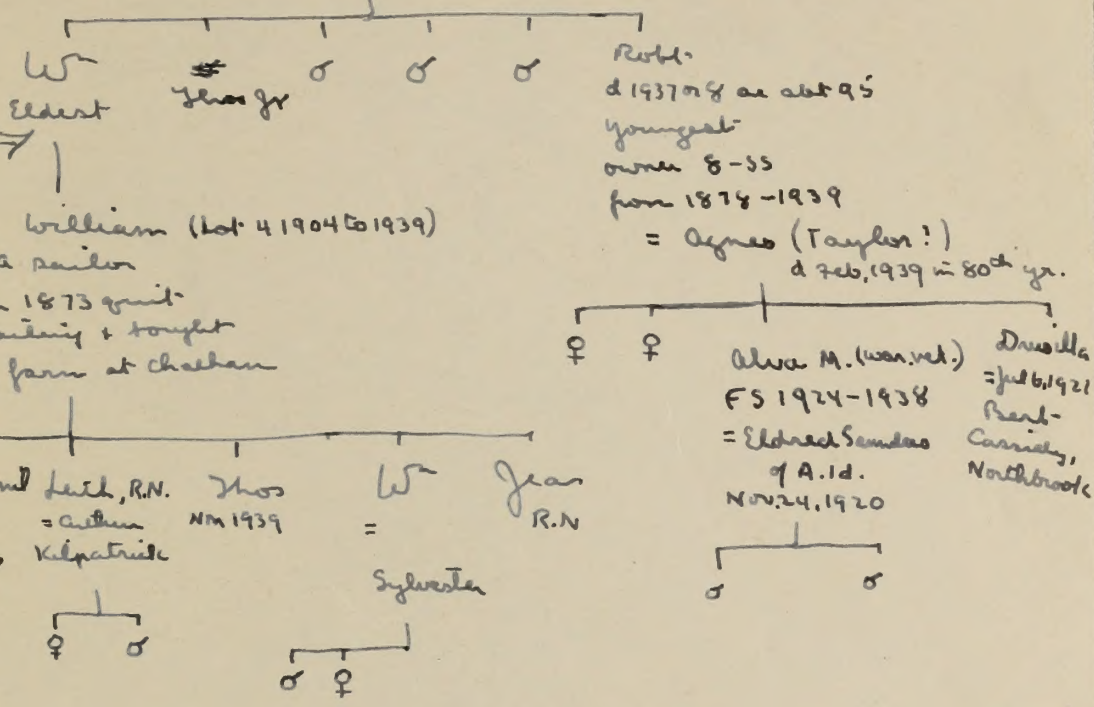 Wm
Eldest
Thos Jr
♂ ♂ ♂
Robt.
d 1937 or 8 ae abt 95
youngest
owner 8-SS
from 1878-1939
= Agnes (Taylor?)
d Feb, 1939 in 80th yr.
William (Lot 4 1904 to 1939)
a sailor
1873 quit
sailing + bought
farm at Chatham
♀ ♀
Alva M. (war. vet.)
FS 1924-1938
= Eldred Saunders
of A. Id.
Nov. 24, 1920
Drusilla
= Jul 6, 1921
Bert
Cassidy,
Northbrook
R.N.
= Arthur
Kilpatrick
♀ ♂
Thos
NM 1939
Wm
=
Sylvester
♂ ♀
Jean
R.N
♂ ♂